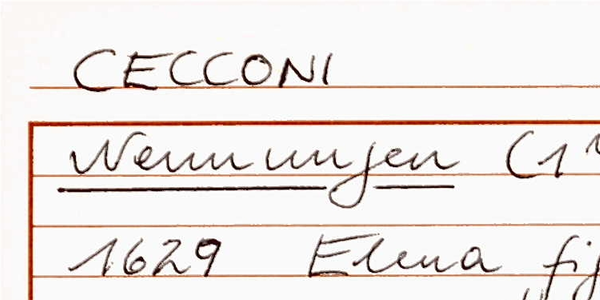 CECCONI
Nennungen (1
1629 Elena